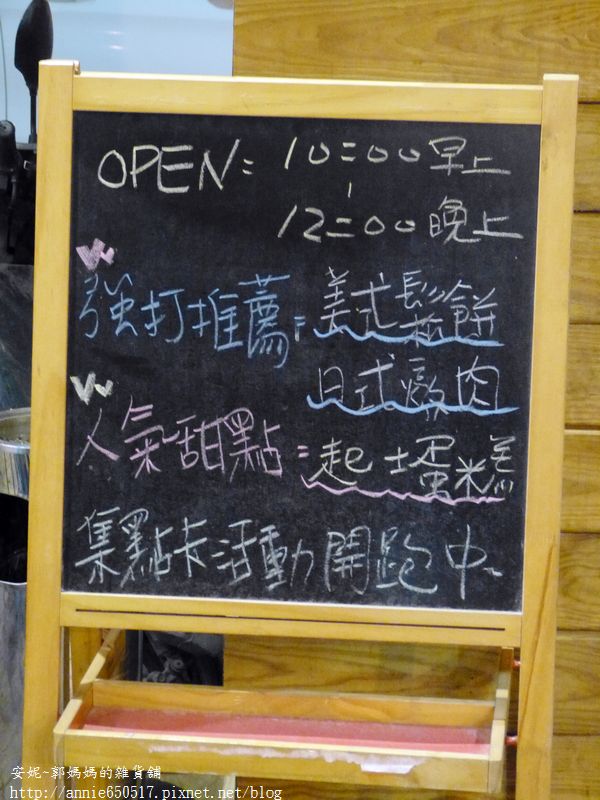 OPEN: 10:00 早上
|
12:00 晚上
強打推薦: 美式鬆餅
日式燉肉
人氣甜點: 起士蛋糕
集點卡活動開跑中~
安妮~郭媽媽的雜貨舖
http://annie650517.pixnet.net/blog